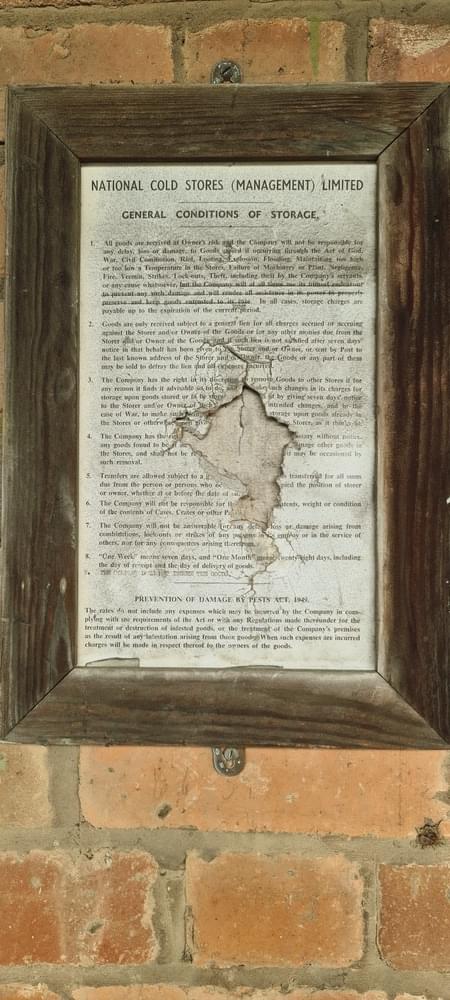 NATIONAL COLD STORES (MANAGEMENT) LIMITED
GENERAL CONDITIONS OF STORAGE.
1. All goods are received at Owner's risk and the Company will not be responsible for
any delay, loss or damage, to Goods stored if occurring through the Act of God,
War, Civil Commotion, Riot, Looting, Explosion, Flooding, Maintaining too high
or too low a Temperature in the Stores, Failure of Machinery or Plant, Negligence,
Fire, Vermin, Strikes, Lock-outs, Theft, including theft by the Company's servants,
or any cause whatsoever, but the Company will at all times use its utmost endeavour
to prevent any such damage and will render all assistance in its power to properly
preserve and keep goods entrusted to its care. In all cases, storage charges are
payable up to the expiration of the current period.
2. Goods are only received subject to a general lien for all charges accrued or accruing
against the Storer and/or Owner of the Goods or for any other monies due from the
Storer and/or Owner of the Goods and if such lien is not satisfied after seven days'
notice in that behalf has been given to the Storer and/or Owner, or sent by Post to
the last known address of the Storer and/or Owner, the Goods or any part of them
may be sold to defray the lien and all expenses incurred.
3. The Company has the right in its discretion to remove Goods to other Stores if for
any reason it finds it advisable so to do, and to make such changes in its charges for
storage upon goods stored or fit by giving seven days' notice
to the Storer and/or Owner of such intended changes, and in the
case of War, to make such storage upon goods already in
the Stores or otherwise Stores, as it
4. The Company has the without notice,
any goods found to be damage other goods in
the Stores, and shall not be may be occasioned by
such removal.
5. Transferrs are allowed subject to a transferred for all sums
due from the person or persons who and the position of storer
or owner, whether at or before the date of
6. The Company will not be responsible for contents, weight or condition
of the contents of Cases, Crates or other
7. The Company will not be answerable for any delay, loss or damage arising from
combinations, lock-outs or strikes of any persons in its employ or in the service of
others, nor for any consequences arising therefrom.
8. "One Week" means seven days, and "One Month" means twenty-eight days, including
the day of receipt and the day of delivery of goods.
9. THE COMPANY
PREVENTION OF DAMAGE BY PESTS ACT, 1949.
The rates do not include any expenses which may be incurred by the Company in com-
plying with the requirements of the Act or with any Regulations made thereunder for the
treatment or destruction of infested goods, or the treatment of the Company's premises
as the result of any infestation arising from those goods. When such expenses are incurred
charges will be made in respect thereof to the owners of the goods.